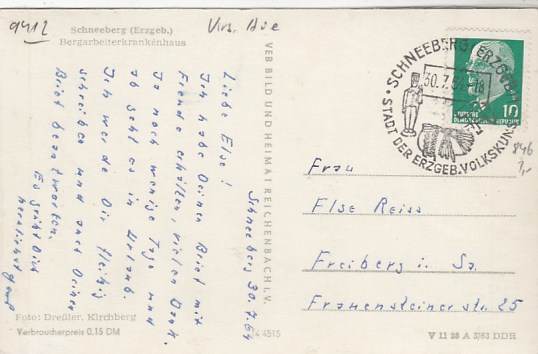 9412
Krs. Aue
Schneeberg (Erzgeb.)
Bergarbeiterkrankenhaus
Schneeberg 30.7.64
Liebe Else!
Ich habe Deinen Brief mit
Freude erhalten, vielen Dank.
Ja noch wenige Tage und
ab geht es in Urlaub.
Ich werde Dir fleißig
schreiben und auch Deinen
Brief beantworten.
Es grüßt Dich
herzlichst
Foto: Dreßler, Kirchberg
Verbraucherpreis 0,15 DM
VEB BILD UND HEIMAT REICHENBACH I. V.
4515
SCHNEEBERG (ERZGEB.)
30.7.64
STADT DER ERZGEB. VOLKSKUNST
10
846
Frau
Else Reiss
Freiberg i. Sa.
Frauensteinerstr. 25
V 11 28 A 3/63 DDR